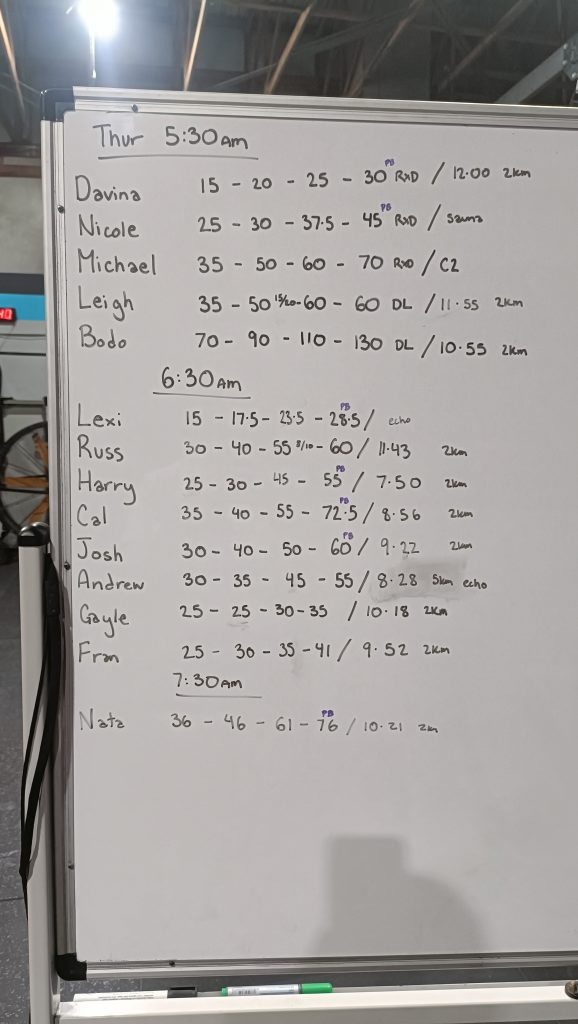 Thur 5:30am
Davina 15 - 20 - 25 - 30 PB RxD / 12.00 2km
Nicole 25 - 30 - 37.5 - 45 PB RxD / Sauna
Michael 35 - 50 - 60 - 70 RxD / C2
Leigh 35 - 50 15/20 - 60 - 60 DL / 11.55 2km
Bodo 70 - 90 - 110 - 130 DL / 10.55 2km
6:30am
Lexi 15 - 17.5 - 23.5 - 28.5 PB / echo
Russ 30 - 40 - 55 8/10 - 60 / 11.43 2km
Harry 25 - 30 - 45 - 55 PB / 7.50 2km
Cal 35 - 40 - 55 - 72.5 PB / 8.56 2km
Josh 30 - 40 - 50 - 60 PB / 9.22 2km
Andrew 30 - 35 - 45 - 55 / 8.28 5km echo
Gayle 25 - 25 - 30 - 35 / 10.18 2km
Fran 25 - 30 - 35 - 41 / 9.52 2km
7:30am
Nata 36 - 46 - 61 - 76 PB / 10.21 2km